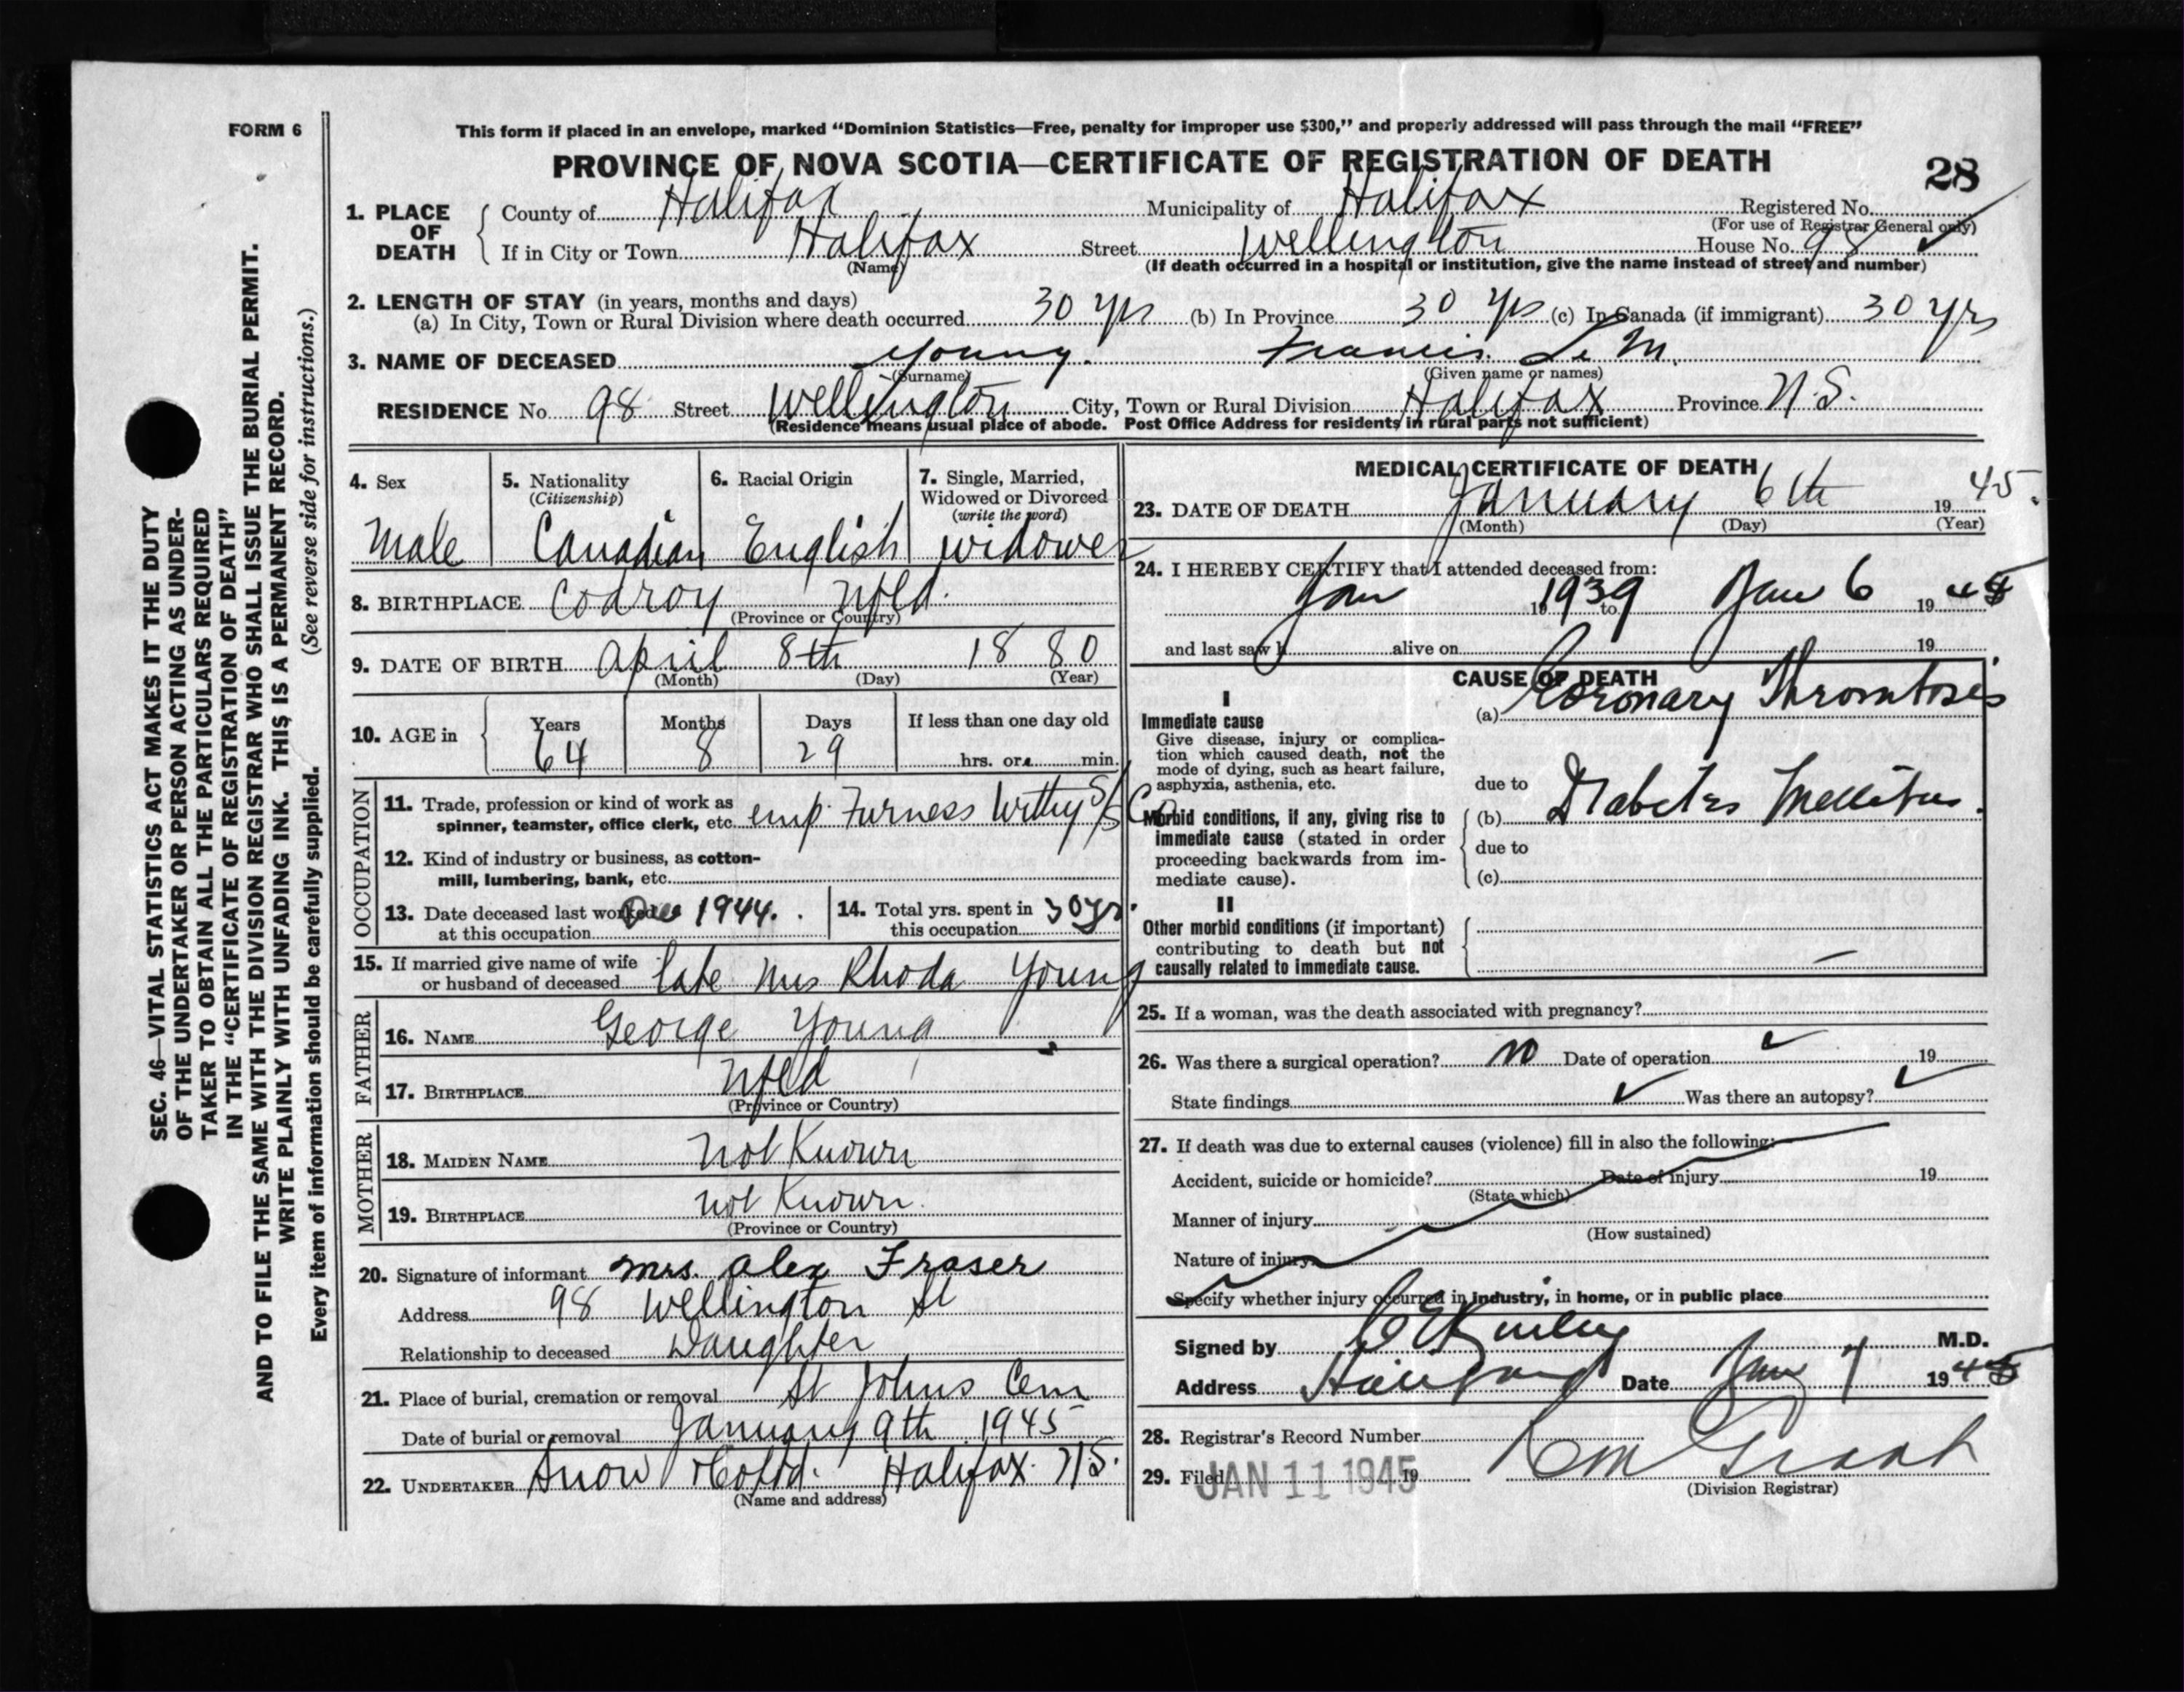 FORM 6
This form if placed in an envelope, marked “Dominion Statistics—Free, penalty for improper use $300,” and properly addressed will pass through the mail “FREE”
PROVINCE OF NOVA SCOTIA—CERTIFICATE OF REGISTRATION OF DEATH
28
1. PLACE OF DEATH County of Halifax Municipality of Halifax Registered No.
(For use of Registrar General only)
If in City or Town Halifax Street Wellington House No. 98
(Name) (If death occurred in a hospital or institution, give the name instead of street and number)
2. LENGTH OF STAY (in years, months and days)
(a) In City, Town or Rural Division where death occurred 30 yrs (b) In Province 30 yrs (c) In Canada (if immigrant) 30 yrs
3. NAME OF DECEASED Young. Francis. Le M.
(Surname) (Given name or names)
RESIDENCE No. 98 Street Wellington City, Town or Rural Division Halifax Province N.S.
(Residence means usual place of abode. Post Office Address for residents in rural parts not sufficient)
4. Sex
Male
5. Nationality
(Citizenship)
Canadian
6. Racial Origin
English
7. Single, Married,
Widowed or Divorced
(write the word)
widower
8. BIRTHPLACE Codroy Nfld.
(Province or Country)
9. DATE OF BIRTH April 8th 1880
(Month) (Day) (Year)
10. AGE in Years Months Days If less than one day old
64 8 29 hrs. or min.
OCCUPATION
11. Trade, profession or kind of work as
spinner, teamster, office clerk, etc. emp. Furness Withy S/S Co
12. Kind of industry or business, as cotton-
mill, lumbering, bank, etc.
13. Date deceased last worked Dec 1944.
at this occupation
14. Total yrs. spent in 30 yrs.
this occupation
15. If married give name of wife
or husband of deceased late Mrs Rhoda Young
FATHER
16. NAME George Young
17. BIRTHPLACE Nfld
(Province or Country)
MOTHER
18. MAIDEN NAME not Known
19. BIRTHPLACE not Known.
(Province or Country)
20. Signature of informant Mrs. Alex Fraser
Address 98 Wellington St
Relationship to deceased Daughter
21. Place of burial, cremation or removal St Johns Cem
Date of burial or removal January 9th 1945
22. UNDERTAKER Snow & Co Ltd. Halifax N.S.
(Name and address)
MEDICAL CERTIFICATE OF DEATH
23. DATE OF DEATH January 6th 1945.
(Month) (Day) (Year)
24. I HEREBY CERTIFY that I attended deceased from:
Jan 19 1939 to Jan 6 1945
and last saw h alive on 19
CAUSE OF DEATH
I
Immediate cause
Give disease, injury or complica-
tion which caused death, not the
mode of dying, such as heart failure,
asphyxia, asthenia, etc.
(a) Coronary Thrombosis
due to
Morbid conditions, if any, giving rise to
immediate cause (stated in order
proceeding backwards from im-
mediate cause).
(b) Diabetes Mellitus.
due to
(c)
II
Other morbid conditions (if important)
contributing to death but not
causally related to immediate cause.
25. If a woman, was the death associated with pregnancy?
26. Was there a surgical operation? no Date of operation 19
State findings Was there an autopsy?
27. If death was due to external causes (violence) fill in also the following:
Accident, suicide or homicide? Date of injury 19
(State which)
Manner of injury
(How sustained)
Nature of injury
Specify whether injury occurred in industry, in home, or in public place
Signed by M.D.
Address Date Jan 7 1945
28. Registrar's Record Number
29. Filed JAN 11 1945 19
Grant
(Division Registrar)
SEC. 46—VITAL STATISTICS ACT MAKES IT THE DUTY
OF THE UNDERTAKER OR PERSON ACTING AS UNDER-
TAKER TO OBTAIN ALL THE PARTICULARS REQUIRED
IN THE “CERTIFICATE OF REGISTRATION OF DEATH”
AND TO FILE THE SAME WITH THE DIVISION REGISTRAR WHO SHALL ISSUE THE BURIAL PERMIT.
WRITE PLAINLY WITH UNFADING INK. THIS IS A PERMANENT RECORD.
Every item of information should be carefully supplied. (See reverse side for instructions.)